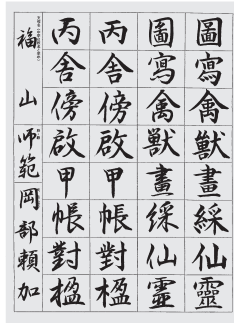 圖寫禽獸畫綵仙靈
圖寫禽獸畫綵仙靈
丙舎傍啟甲帳對楹
丙舎傍啟甲帳對楹
福山 師範 岡部頼加